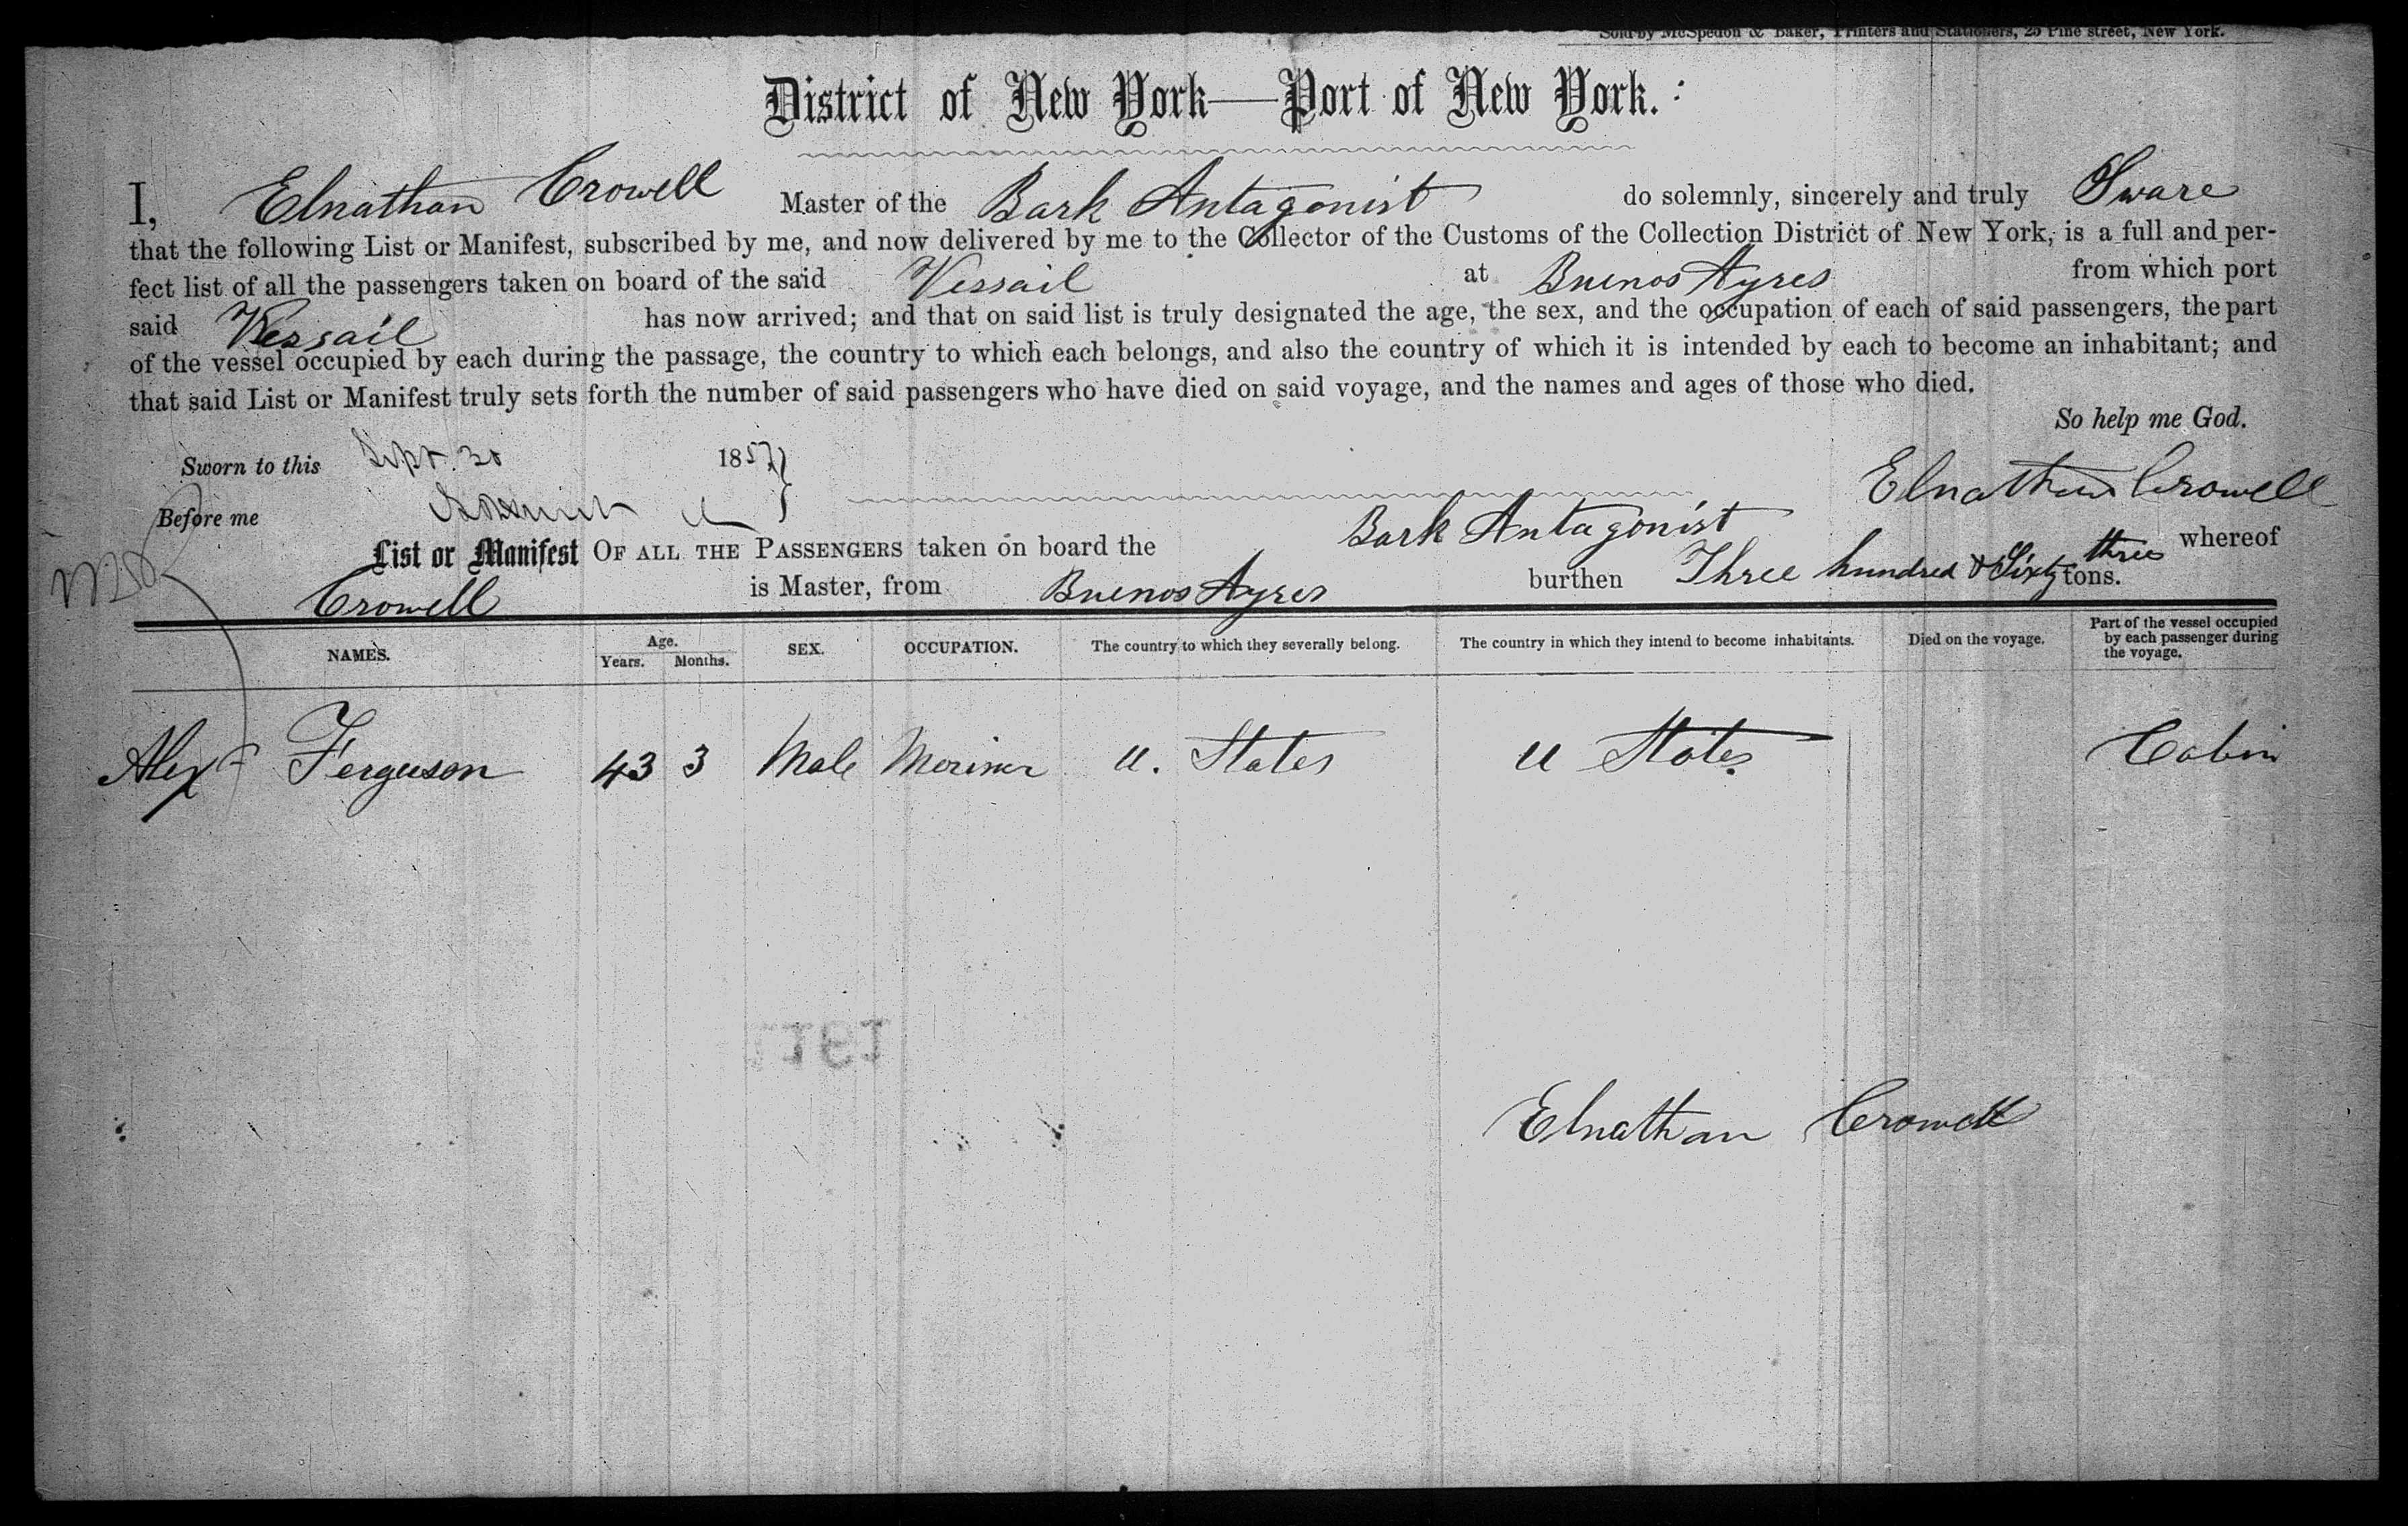 Sold by McSpedon & Baker, Printers and Stationers, 25 Pine street, New York.
District of New York—Port of New York.
I, Elnathan Crowell Master of the Bark Antagonist do solemnly, sincerely and truly Sware
that the following List or Manifest, subscribed by me, and now delivered by me to the Collector of the Customs of the Collection District of New York, is a full and per-
fect list of all the passengers taken on board of the said Vessail at Buenos Ayres from which port
said Vessail has now arrived; and that on said list is truly designated the age, the sex, and the occupation of each of said passengers, the part
of the vessel occupied by each during the passage, the country to which each belongs, and also the country of which it is intended by each to become an inhabitant; and
that said List or Manifest truly sets forth the number of said passengers who have died on said voyage, and the names and ages of those who died.
So help me God.
Sworn to this Sept. 30 1857
Elnathan Crowell
Before me
List or Manifest OF ALL THE PASSENGERS taken on board the Bark Antagonist whereof
Crowell is Master, from Buenos Ayres burthen Three hundred & Sixty three tons.
NAMES. Age. Years. Months. SEX. OCCUPATION. The country to which they severally belong. The country in which they intend to become inhabitants. Died on the voyage. Part of the vessel occupied by each passenger during the voyage.
Alex Ferguson 43 3 Male Meriner U. States U States Cabin
Elnathan Crowell